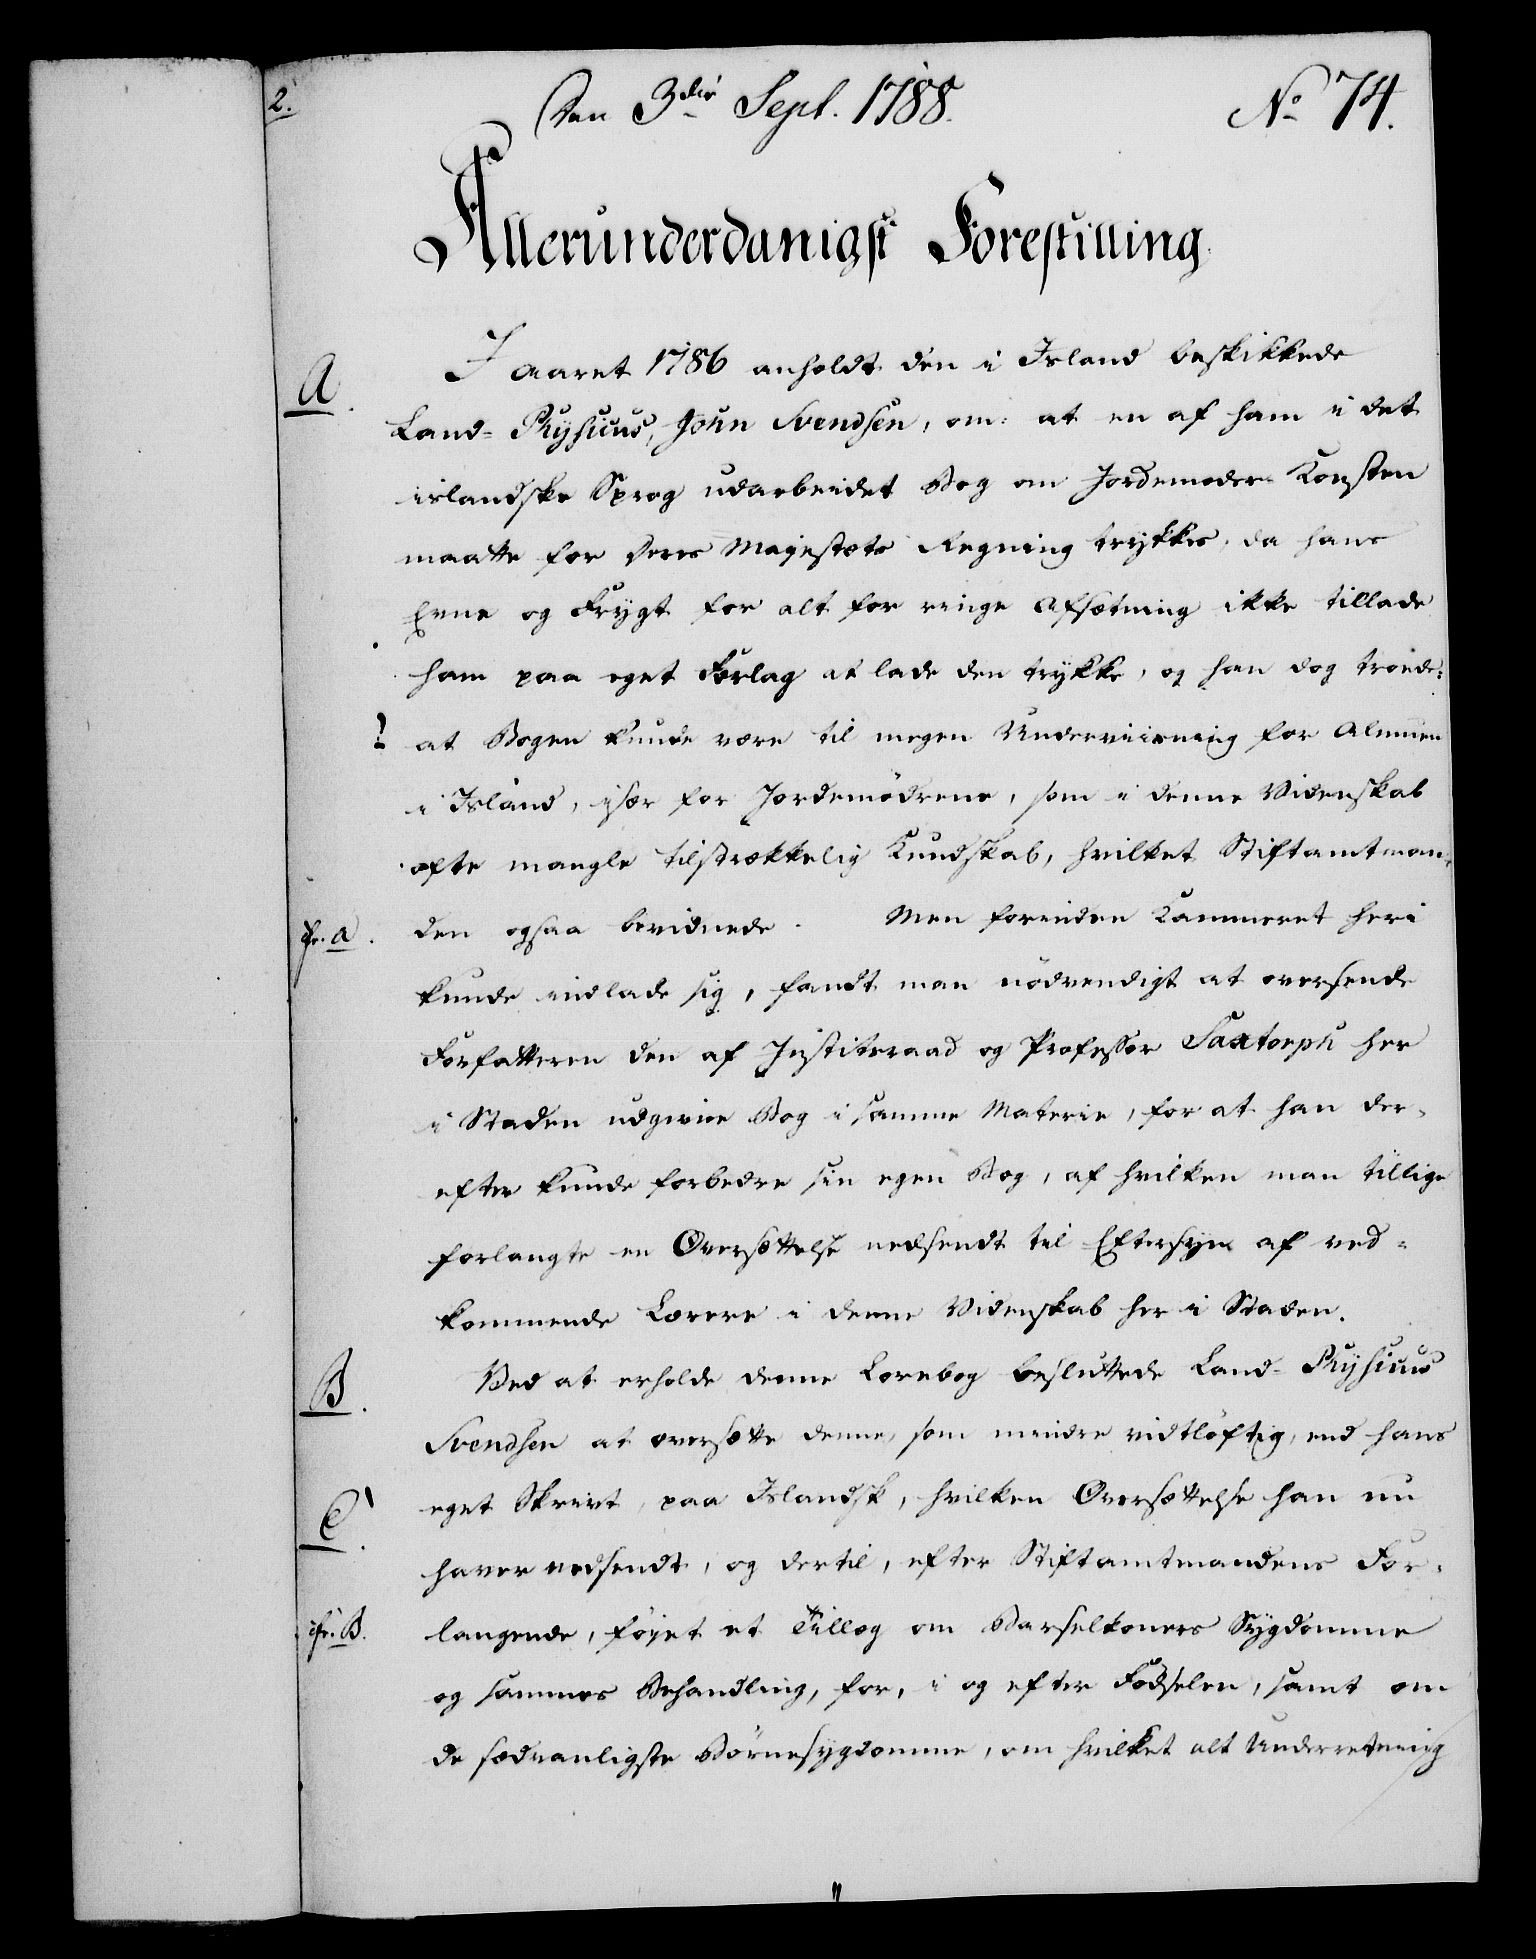 2.
Den 3die Sept. 1788.
No 74.
Allerunderdanigst Forestilling.
A.
I aaret 1786 anholdt den i Island beskikkede
Land- Physicus, John Svendsen, om: at en af ham i det
islandske Sprog udarbeidet Bog om Jordemoder- Konsten
maatte for Deres Majestæts Regning trykkes, da hans
Evne og Frygt for alt for ringe Afsætning ikke tillade
ham paa eget Forlag at lade den trykke, og han dog troede:
at Bogen kunde være til megen Underviisning for Almuen
i Island, især for Jordemødrene, som i denne Videnskab
ofte mangle tilstrækkelig Kundskab, hvilket Stiftamtman-
cfr. a.
den ogsaa bevidnede. Men forinden Kammeret heri
kunde indlade sig, fandt man nödvendigt at oversende
Forfatteren den af Justitsraad og Professor Saxtorph her
i Staden udgivne Bog i samme Materie, for at han der-
efter kunde forbedre sin egen Bog, af hvilken man tillige
forlangte en Oversættelse nedsendt til Eftersyn af ved-
kommende Lærere i denne Videnskab her i Staden.
B.
Ved at erholde denne Lærebog besluttede Land- Physicus
Svendsen at oversætte denne, som mindre vidtløftig, end hans
C.
eget Skrivt, paa Islandsk, hvilken Oversættelse han nu
haver nedsendt, og dertil, efter Stiftamtmandens For-
cfr. B.
langende, føjet et Tillæg om Barselkoners Sygdomme
og sammes Behandling, for, i og efter Fødselen, samt om
de sædvanligste Börnesygdomme, om hvilket alt Underretning